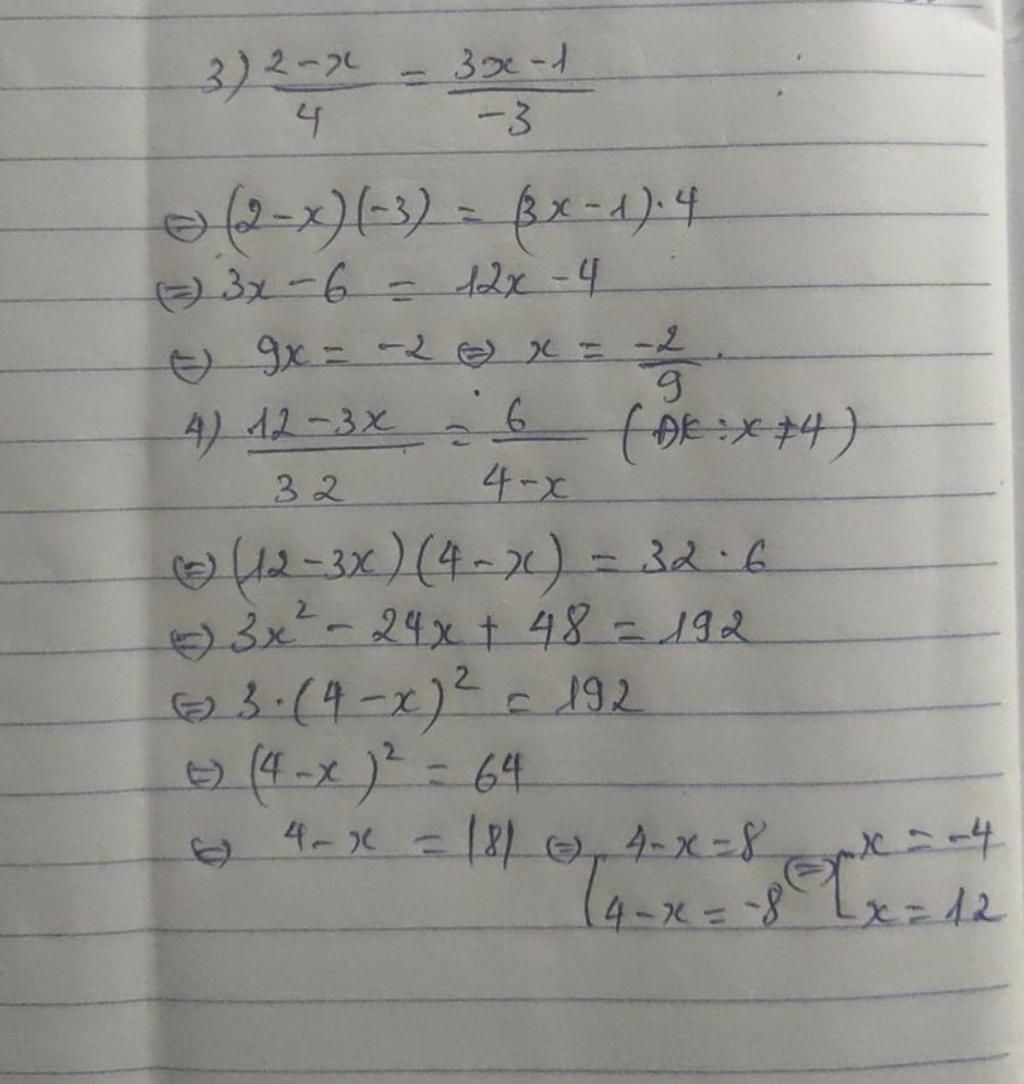 3) \frac{2-x}{4} = \frac{3x-1}{-3}
⇔ (2-x)(-3) = (3x-1)·4
⇔ 3x - 6 = 12x - 4
⇔ 9x = -2 ⇔ x = \frac{-2}{9}.
4) \frac{12-3x}{32} = \frac{6}{4-x} (ĐK: x ≠ 4)
⇔ (12-3x)(4-x) = 32·6
⇔ 3x² - 24x + 48 = 192
⇔ 3·(4-x)² = 192
⇔ (4-x)² = 64
⇔ 4-x = |8| ⇔ [4-x = 8 ⇔ [x = -4
4-x = -8 x = 12